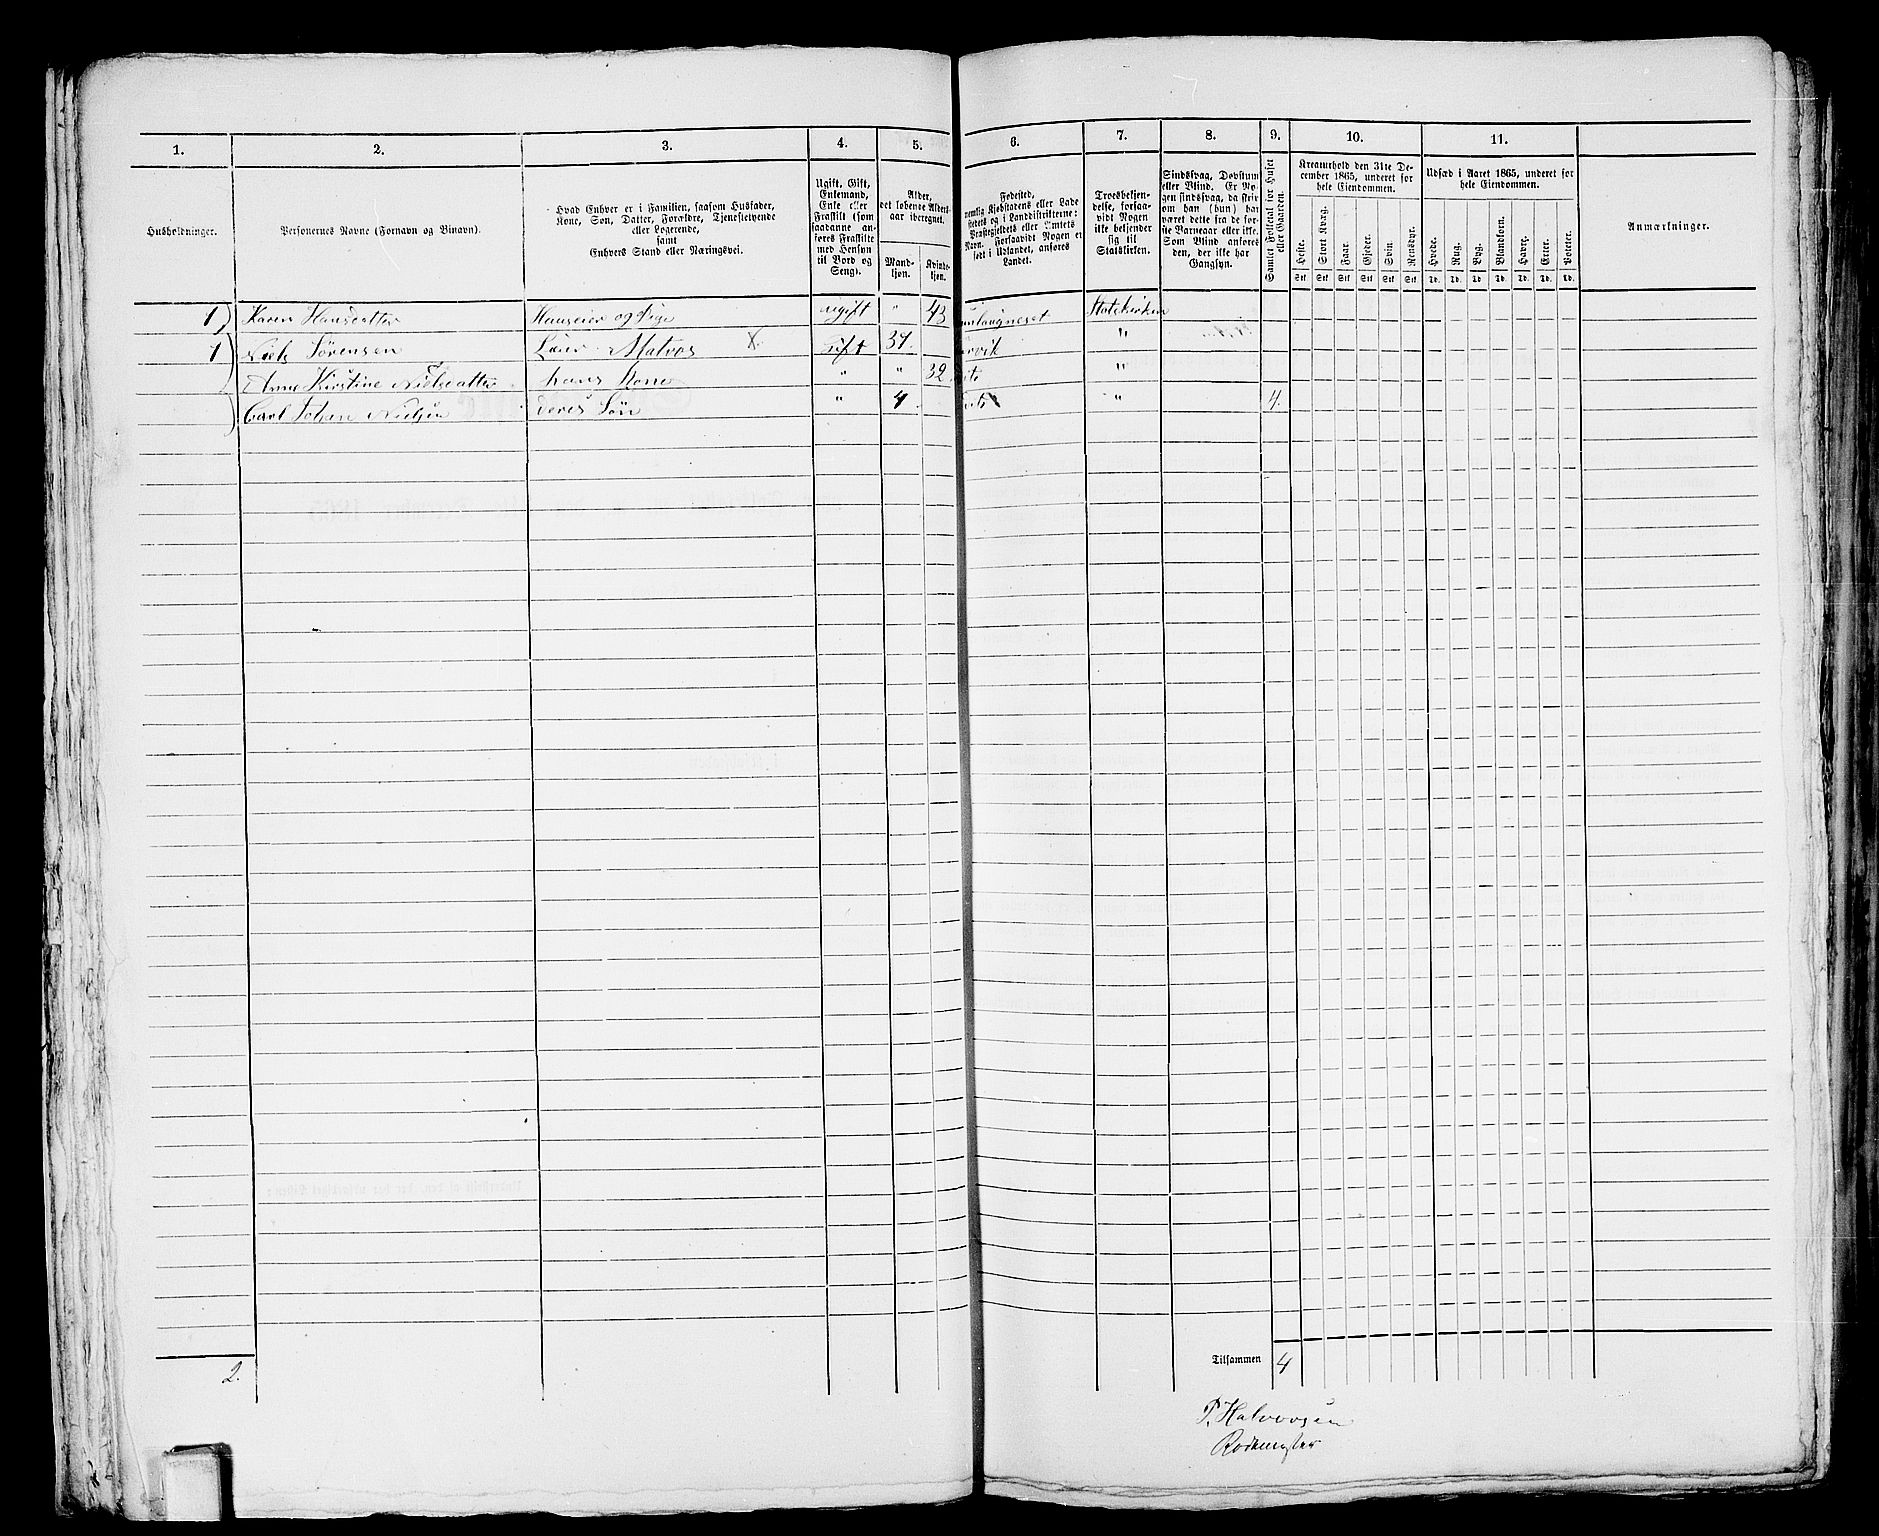 1.
2.
3.
4.
5.
6.
7.
8.
9.
10.
11.
Husholdninger.
Personernes Navne (Fornavn og Binavn).
Hvad Enhver er i Familien, saasom Husfader,
Kone, Søn, Datter, Forældre, Tjenestetyende
eller Logerende,
samt
Enhvers Stand eller Næringsvei.
Ugift, Gift,
Enkemand,
Enke eller
Fraskilt (som
saadanne an-
føres Fraskilte
med Hensyn
til Bord og
Seng).
Alder,
det løbende Alders-
aar iberegnet.
Mand-
kjøn.
Kvinde-
kjøn.
Fødested,
nemlig Kjøbstadens eller Lade
stedets og i Landdistrikterne:
Præstegjeldets eller Amtets
Navn. Forsaavidt Nogen er
født i Udlandet, anføres
Landet.
Troesbekjen-
delse, forsaa-
vidt Nogen
ikke bekjender
sig til
Statskirken.
Sindssvag, Døvstum
eller Blind. Er No-
gen sindssvag, da skriv
om han (hun) har
været dette fra de før-
ste Barneaar eller ikke.
Som Blind anføres
den, der ikke har
Gangsyn.
Samlet Folketal for Huset
eller Gaarden.
Kreaturhold den 31te De-
cember 1865, underet for
hele Eiendommen.
Heste.
Stort Kvæg.
Faar.
Gjeder.
Svin.
Rensdyr.
Stk Stk Stk Stk Stk Stk
Udsæd i Aaret 1865, underet for
hele Eiendommen.
Hvede.
Rug.
Byg.
Blandkorn.
Havre.
Erter.
Poteter.
Td. Td. Td Td Td. Td. Td.
Anmærkninger.
1) Karen Hansdatter Huuseier og Pige ugift " 43 Statskirken
1 Niels Sørensen Loier Matros X. Gift 37. "
Anne Kirstine Nielsdatter hans Kone " " 32 "
Carl Johan Nielsen deres Søn " 4 " 4.
2.
Tilsammen 4
P. Halvorsen
Rodemester